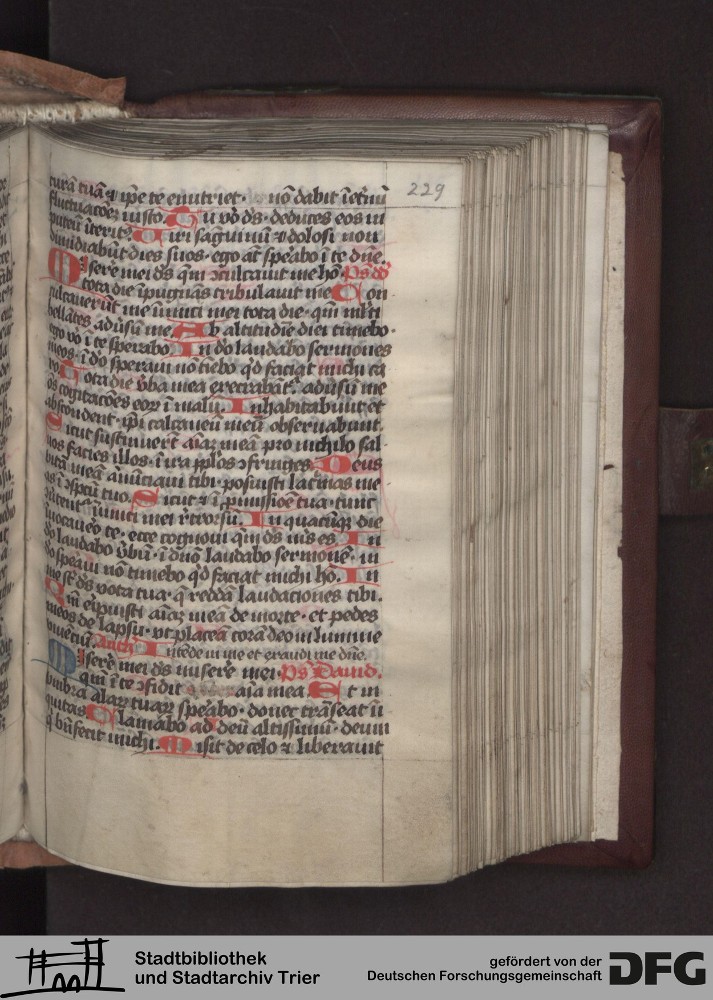 229
curā tuā ⁊ ip̄e te enutriet · nō dabit ī et̄nū
fluctuacōeȝ iusto. Tu vo ds · deduces eos in
puteū īterit⁹ Uiri sāguinū ⁊ dolosi non
dimidiabūt dies suos · ego at̄ sp̄abo ī te dn̄e.
Misere mei ds qm̄ ꝯculcauit me hō. Ps dd
tota die īpugnās tribulauit me Con
culcauer̄ūt me inimici mei tota die · qm̄ ml̄ti
bellātes adūsū me. Ab altitudīe diei timebo ·
ego vo ī te sperabo. In do laudabo sermones
meos · ī do speraui nō timebo qd faciat michi ca
ro Tota die v̄ba mea execrabāt̄ · adūsū me
oēs cogitacōes eoꝝ ī malū. Inhabitabunt et
abscondent · ip̄i calcaneū meū obseruabunt.
Sicut sustinuer̄t aīaȝ meā pro nichilo sal
uos facies illos · ī ira pp̄los ꝯfringes. Deus
vitā meā ānūciaui tibi · posuisti lacimas me
as ī ꝯspcū tuo. Sicut ⁊ ī ꝓmissiōe tua · tunc
ꝯūtent̄ inimici mei r̄trorsū. In quacūqȝ die
īuocaueo te · ecce cognoui qm̄ ds m̄s es In
do laudabo v̄bū · ī dn̄o laudabo sermonē · in
do speaui nō timebo qd faciat michi hō. In
me st̄ ds vota tua · q̄ reddā laudaciones tibi.
Qm̄ eripuisti aīaȝ meā de morte · et pedes
meos de lapsu · vt placeā corā deo in lumine
viuētiū. Anth̄ Intēde in me et exaudi me dn̄e.
Miserē mei ds miserē mei. Ps Dauid.
qm̄ ī te ꝯfidit aīa mea Et in
vmbra alaꝝ tuaꝝ speabo · donec trāseat ī
quitas Clamabo ad deū altissimū · deum
q̄ b̄nfecit michi. Misit de celo ⁊ liberauit
Stadtbibliothek
und Stadtarchiv Trier
gefördert von der
Deutschen Forschungsgemeinschaft
DFG